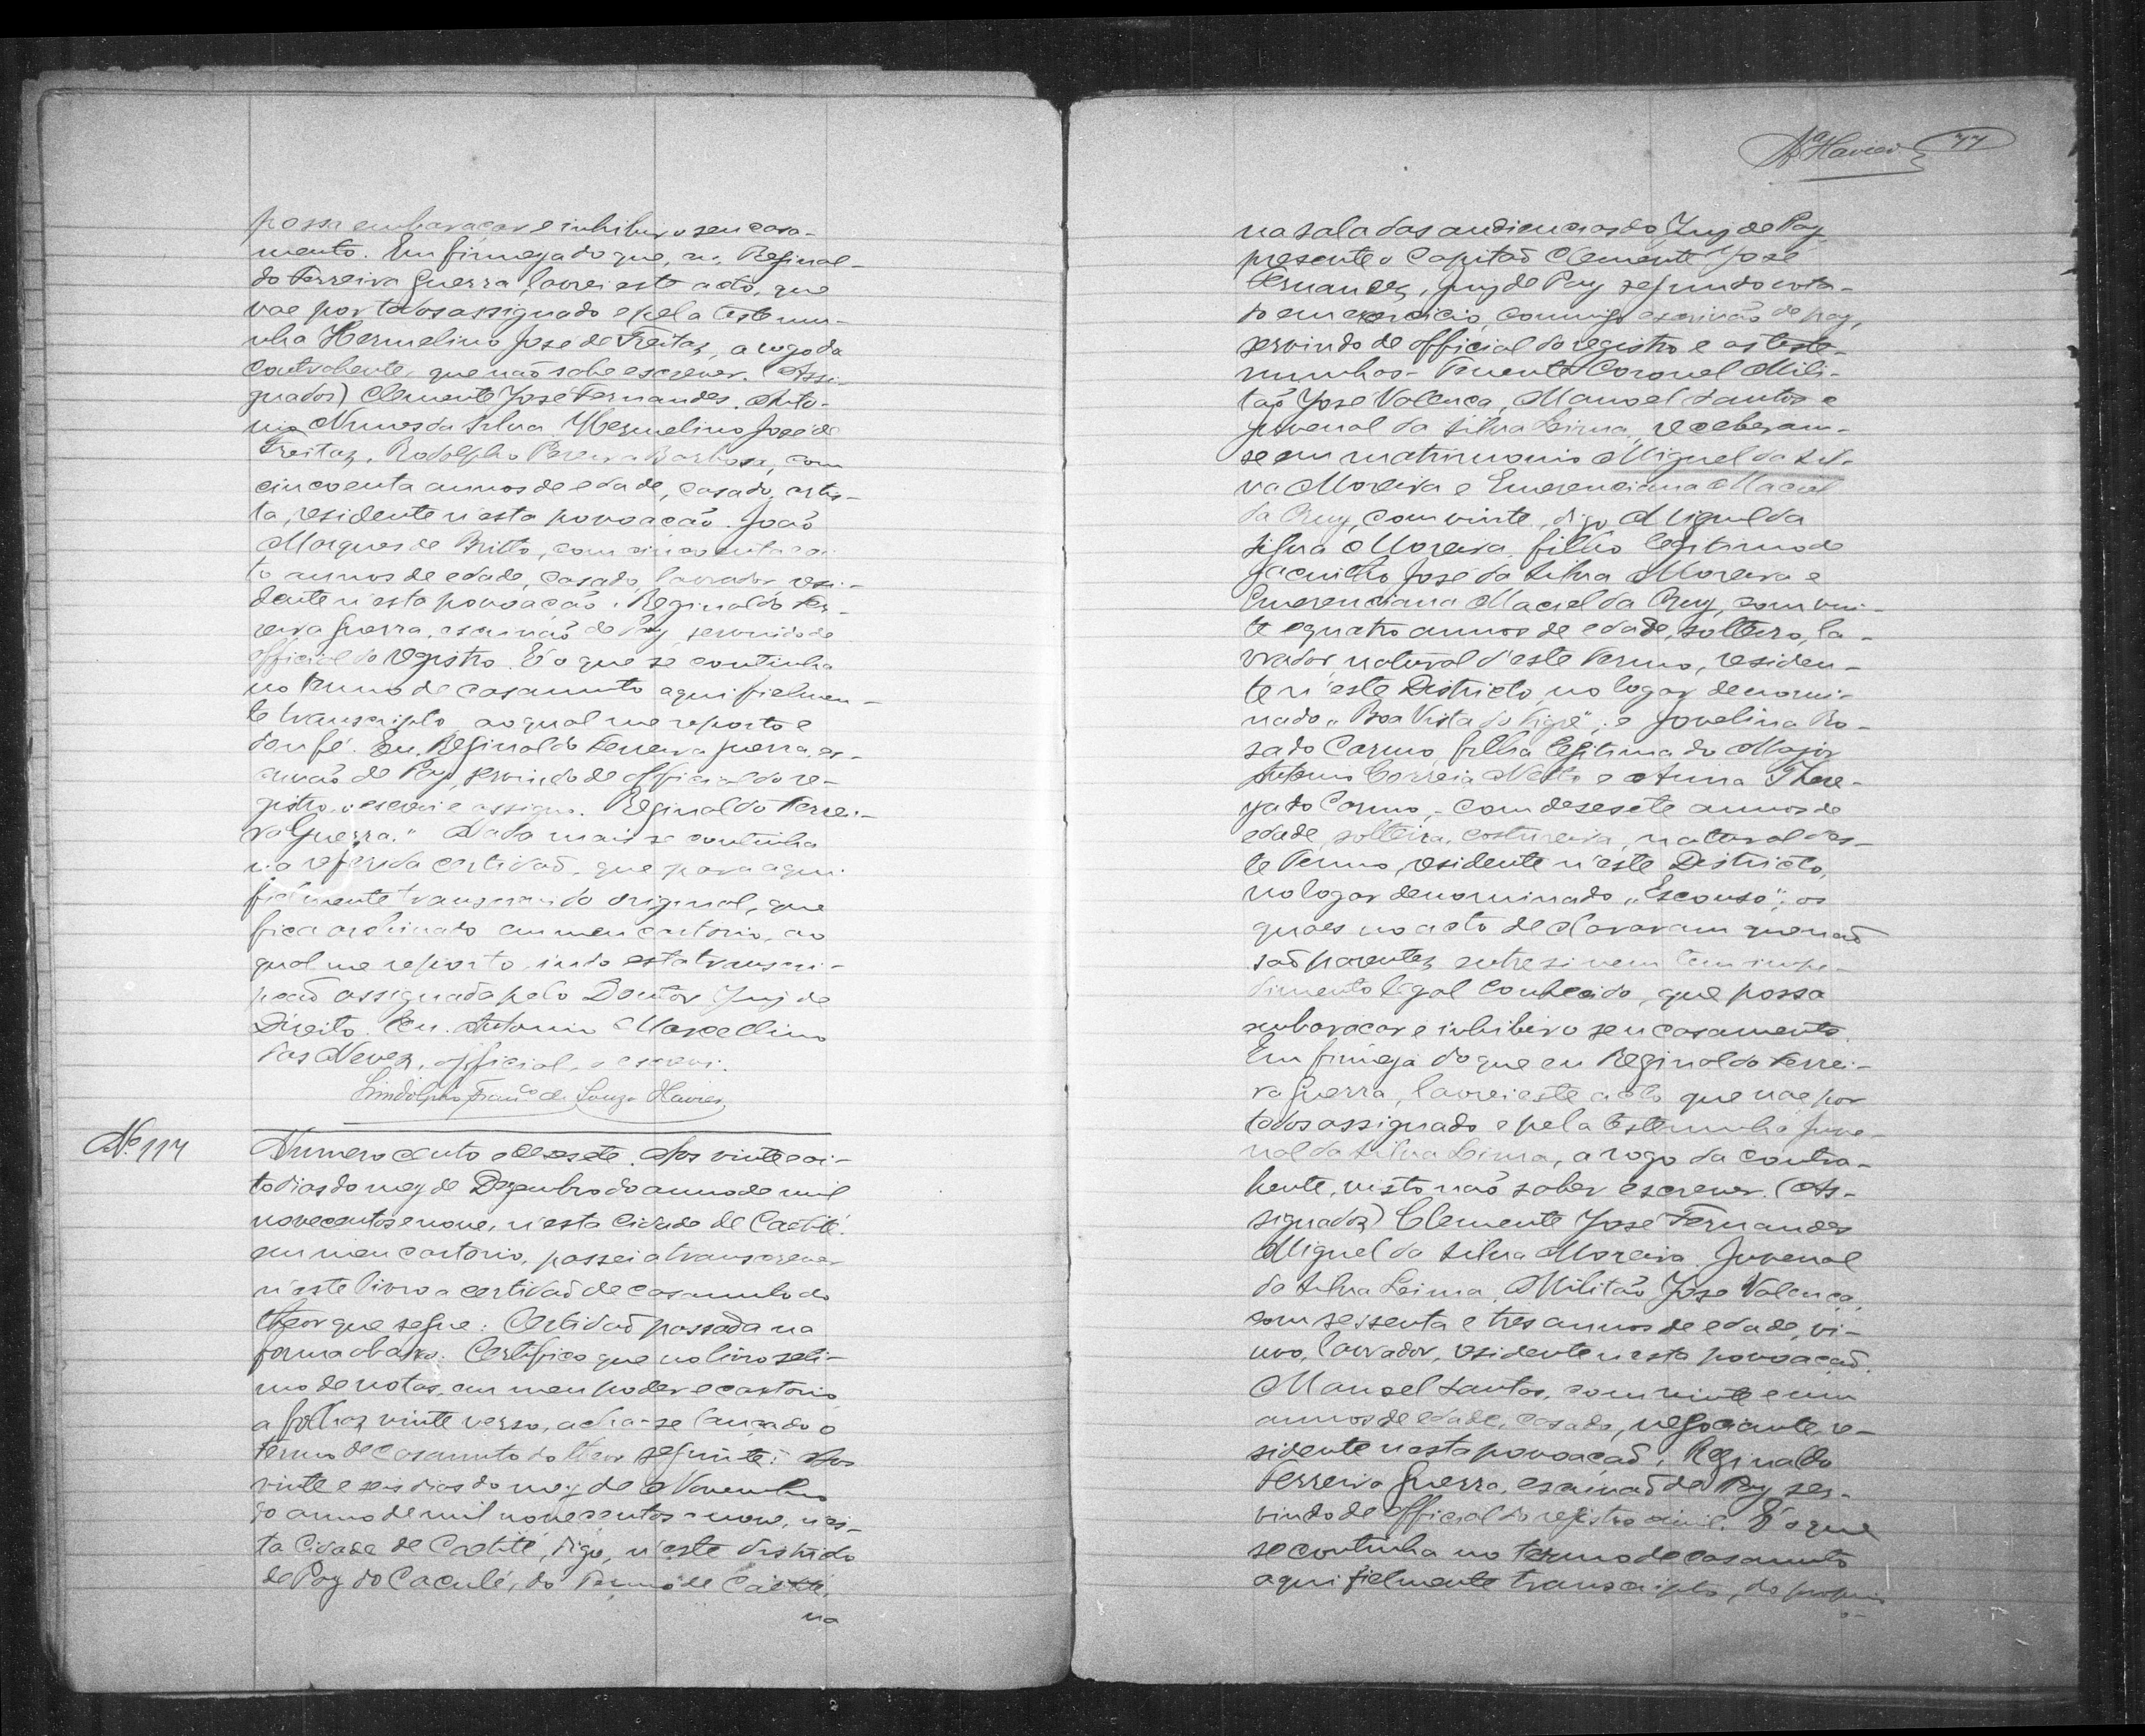 possa embaraçar e inhibir o seu casa-
mento. Em firmeza do que, eu, Reginal-
do Ferreira Guerra, lavrei este acto, que
vae por todos assignado e pela testemu-
nha Hermelino José de Freitas, a rogo da
contrahente, que não sabe escrever. (Assi-
gnados) Clemente José Fernandes. Anto-
nio Nunes da Silva. Hermelino José de
Freitas. Rodolpho Pereira Barbosa, com
cincoenta annos de edade, casado, artis-
ta, residente n'esta povoação. João
Marques de Britto, com cincoenta e oi-
to annos de edade, casado, lavrador, resi-
dente n'esta povoação. Reginaldo Fer-
reira Guerra, escrivão de Paz, servindo de
official do registro. É o que se continha
no termo de casamento aqui fielmen-
te transcripto, ao qual me reporto e
dou fé. Eu, Reginaldo Ferreira Guerra, es-
crivão de Paz, servindo de official do re-
gistro, o escrevi e assigno. Reginaldo Ferrei-
ra Guerra." Nada mais se continha
na referida certidão, que para aqui
fielmente transcrevi do original, que
fica archivado em meu cartorio, ao
qual me reporto, indo esta transcri-
pção assignada pelo Doutor Juiz de
Direito. Eu, Antonio Marcellino
das Neves, official, o escrevi.
Lindolpho Franco de Souza Havier
Nº 117
Numero cento e desesete. Aos vinte e oi-
to dias do mez de Dezembro do anno de mil
novecentos e nove, n'esta Cidade de Caetité,
em meu cartorio, passei a transcrever
n'este livro a certidão de casamento do
theor que segue: Certidão passada na
forma abaixo. Certifico que no livro seti-
mo de notas, em meu poder e cartorio,
a folhas vinte verso, acha-se lançado o
termo de casamento do theor seguinte: Aos
vinte e seis dias do mez de Novembro
do anno de mil novecentos e nove, n'es-
ta Cidade de Caetité, digo, n'este districto
de Paz do Caculé, do Termo de Caetité,
na
Havier 77
na sala das audiencias do Juiz de Paz,
presente o Capitão Clemente José
Fernandes, Juiz de Paz segundo vota-
do em exercicio, commigo escrivão de paz,
servindo de official do registro e as teste-
munhas - Tenente Coronel Mili-
tão José Valença, Manoel Santos e
Juvenal da Silva Leima, receberam-
se em matrimonio Miguel da Sil-
va Moreira e Emerenciana Maciel
da Cruz, com vinte, digo Miguel da
Silva Moreira, filho legitimo de
Jacintho José da Silva Moreira e
Emerenciana Maciel da Cruz, com vin-
te e quatro annos de edade, solteiro, la-
vrador, natural d'este Termo, residen-
te n'este Districto, no logar denomi-
nado "Boa Vista do Tigre"; e Jovelina Ro-
sa do Carmo, filha legitima do Major
Antonio Correia Netto e Anna There-
za do Carmo, com desesete annos de
edade, solteira, costureira, natural d'es-
te Termo, residente n'este Districto,
no logar denominado "Esconso"; os
quaes no acto declararam que não
são parentes entre si nem tem impe-
dimento legal conhecido, que possa
embaraçar e inhibir o seu casamento.
Em firmeza do que eu Reginaldo Ferrei-
ra Guerra, lavrei este acto que vae por
todos assignado e pela testemunha Juve-
nal da Silva Leima, a rogo da contra-
hente, visto não saber escrever. (As-
signados) Clemente José Fernandes
Miguel da Silva Moreira. Juvenal
da Silva Leima. Militão José Valença,
com sessenta e tres annos de edade, vi-
uvo, lavrador, residente n'esta povoação.
Manoel Santos, com vinte e um
annos de edade, casado, negociante, re-
sidente n'esta povoação. Reginaldo
Ferreira Guerra, escrivão de Paz ser-
vindo de official do registro civil. É o que
se continha no termo de casamento
aqui fielmente transcripto, do proprio